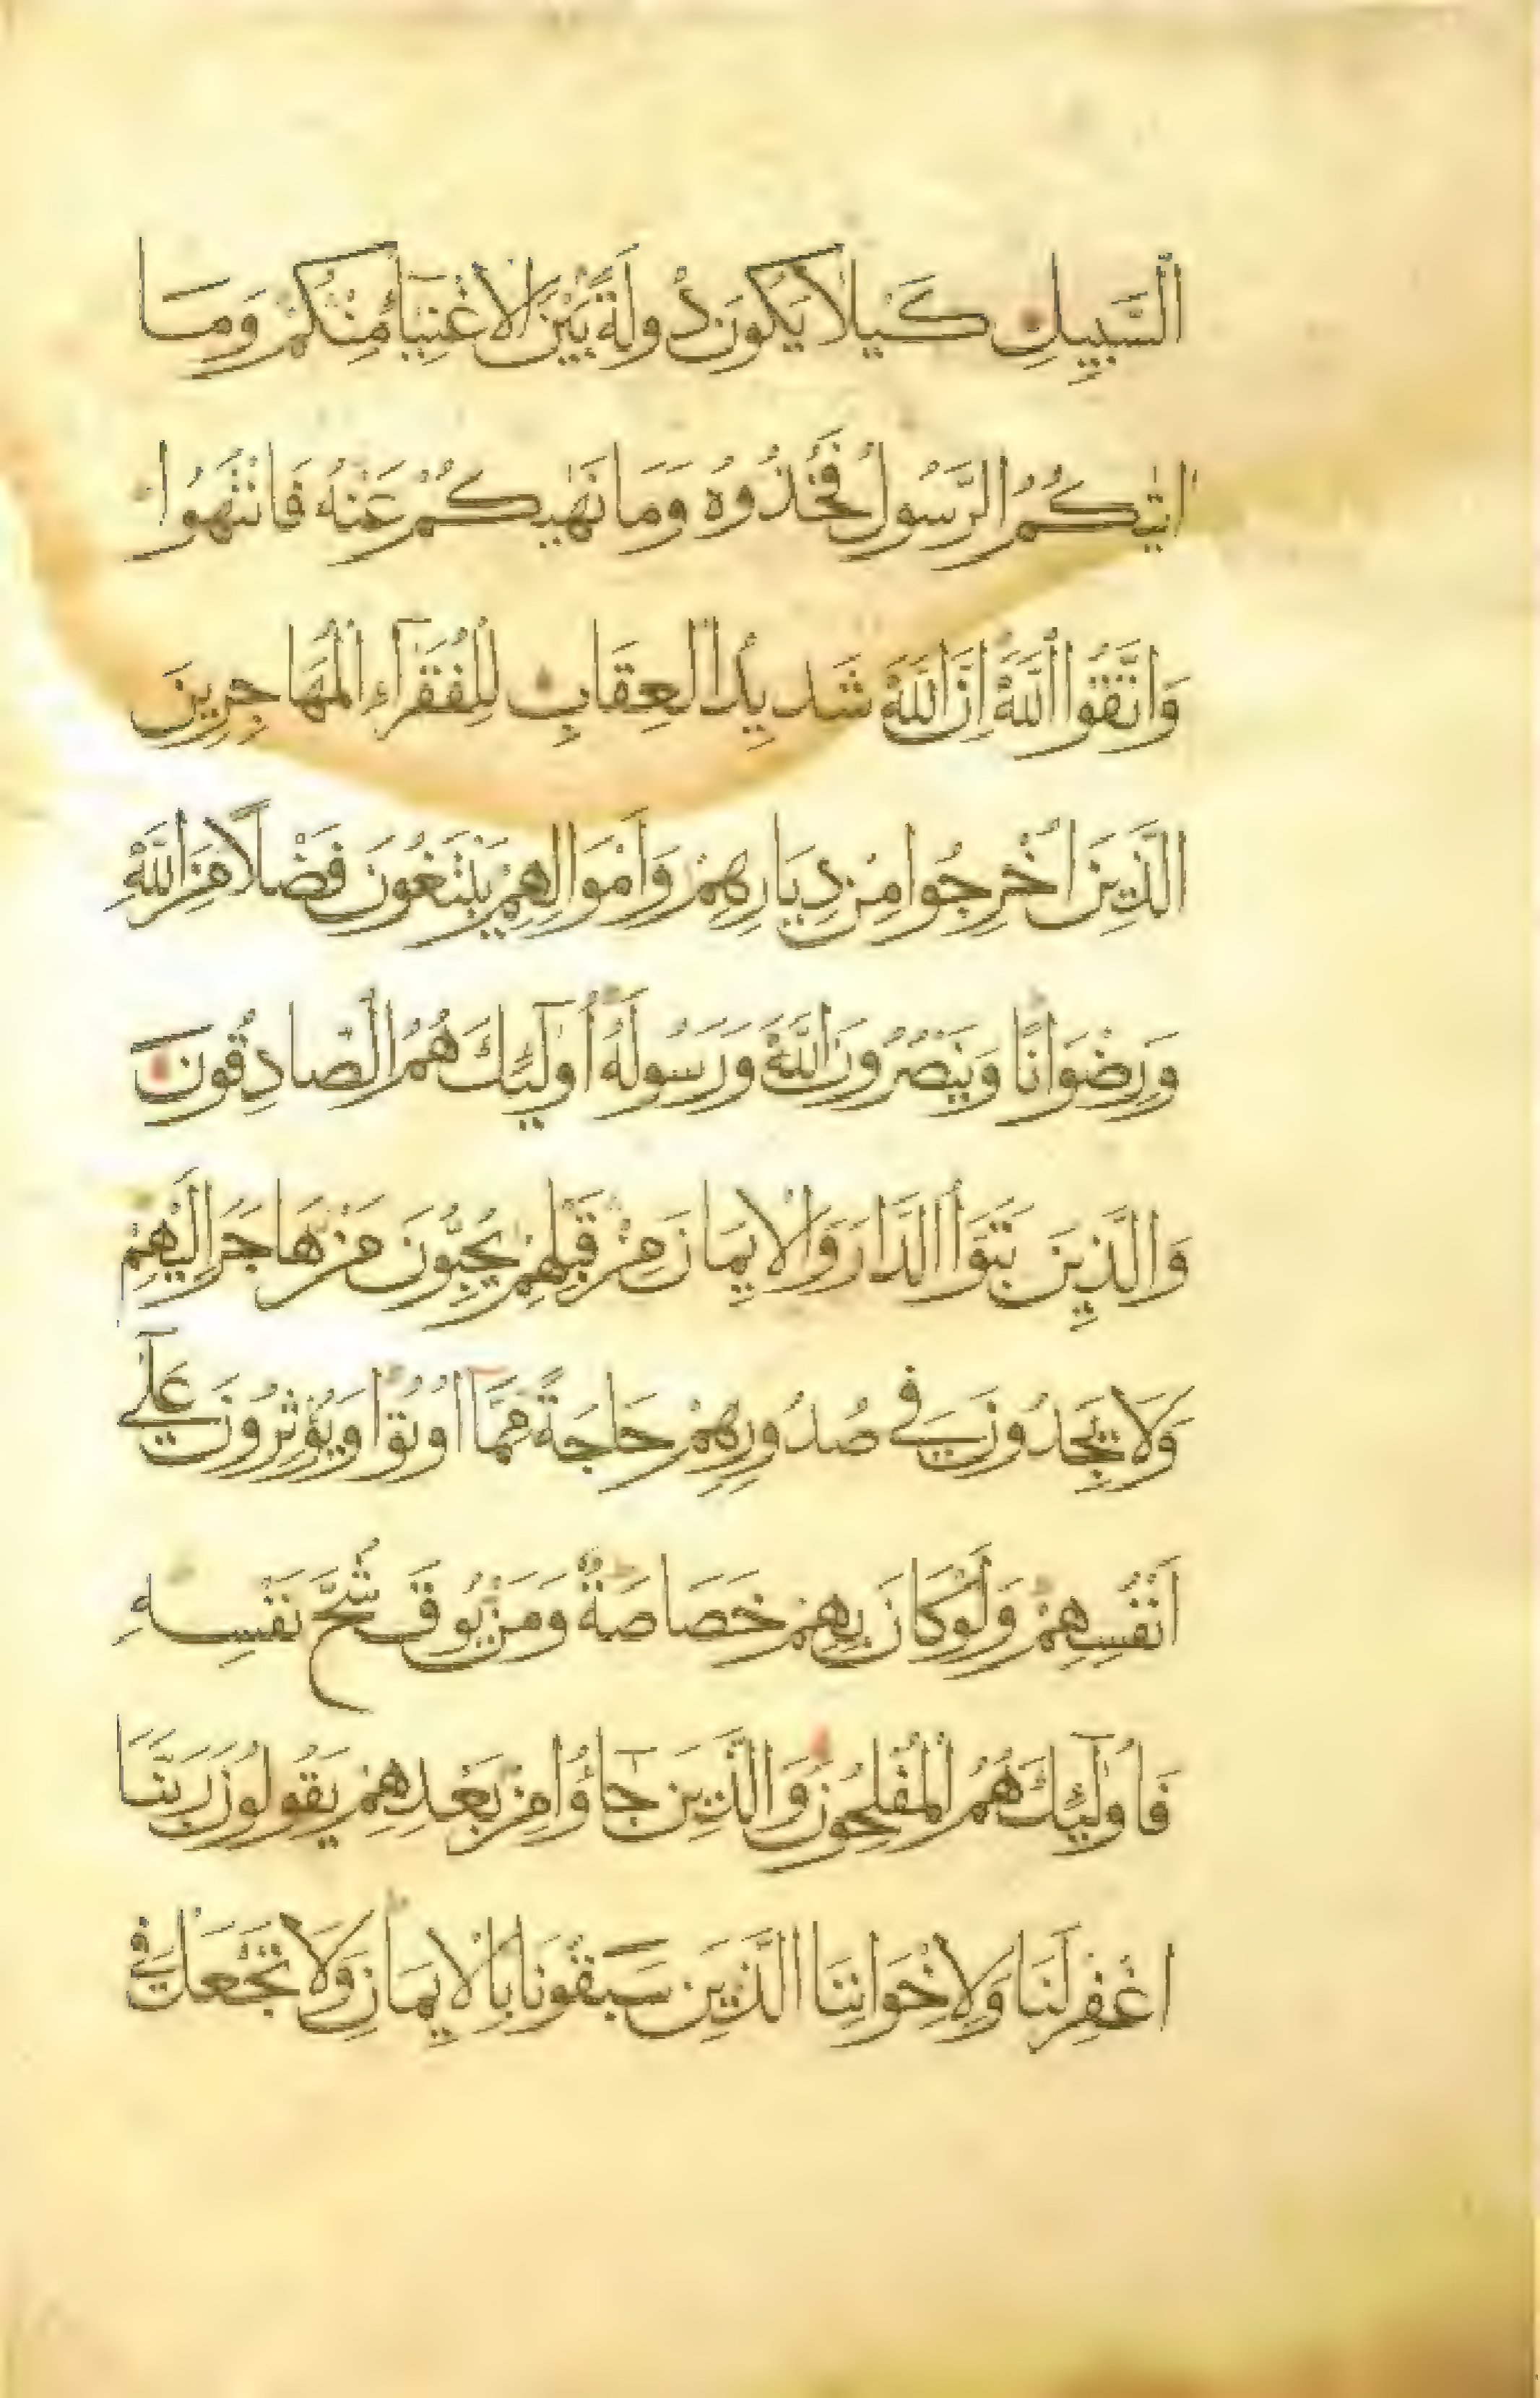 السَّبِيلِ كَيْلَا يَكُونَ دُولَةً بَيْنَ الْاَغْنِيَآءِ مِنْكُمْ وَمَا
اٰتٰيكُمُ الرَّسُولُ فَخُذُوهُ وَمَا نَهٰيكُمْ عَنْهُ فَانْتَهُوا
وَاتَّقُوا اللّٰهَ اِنَّ اللّٰهَ شَدِيدُ الْعِقَابِ لِلْفُقَرَآءِ الْمُهَاجِرِينَ
الَّذِينَ اُخْرِجُوا مِنْ دِيَارِهِمْ وَاَمْوَالِهِمْ يَبْتَغُونَ فَضْلًا مِنَ اللّٰهِ
وَرِضْوَانًا وَيَنْصُرُونَ اللّٰهَ وَرَسُولَهُ اُولٰٓئِكَ هُمُ الصَّادِقُونَ
وَالَّذِينَ تَبَوَّؤُا الدَّارَ وَالْاِيمَانَ مِنْ قَبْلِهِمْ يُحِبُّونَ مَنْ هَاجَرَ اِلَيْهِمْ
وَلَا يَجِدُونَ فِى صُدُورِهِمْ حَاجَةً مِمَّآ اُوتُوا وَيُؤْثِرُونَ عَلٰٓى
اَنْفُسِهِمْ وَلَوْ كَانَ بِهِمْ خَصَاصَةٌ وَمَنْ يُوقَ شُحَّ نَفْسِهِ
فَاُولٰٓئِكَ هُمُ الْمُفْلِحُونَ وَالَّذِينَ جَآؤُا مِنْ بَعْدِهِمْ يَقُولُونَ رَبَّنَا
اغْفِرْ لَنَا وَلِاِخْوَانِنَا الَّذِينَ سَبَقُونَا بِالْاِيمَانِ وَلَا تَجْعَلْ فِى